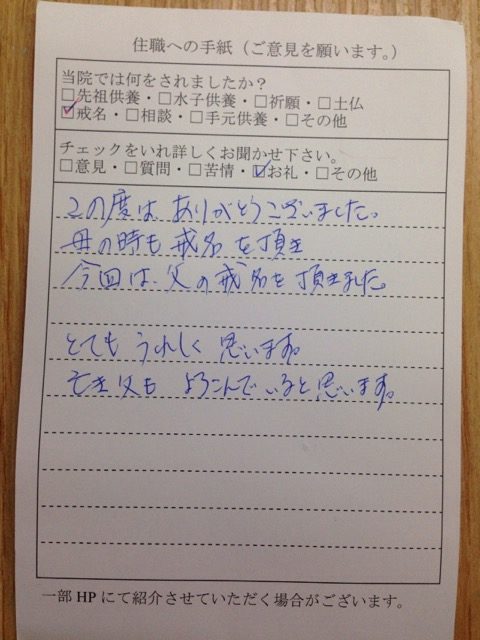 住職への手紙（ご意見を願います。）
当院では何をされましたか？
□先祖供養・□水子供養・□祈願・□土仏
☑戒名・□相談・□手元供養・□その他
チェックをいれ詳しくお聞かせ下さい。
□意見・□質問・□苦情・☑お礼・□その他
この度は ありがとうございました。
母の時も 戒名を頂き
今回は、父の戒名を頂きました。
とても うれしく 思います。
亡き父も よろこんで いると思います。
一部 HP にて紹介させていただく場合がございます。